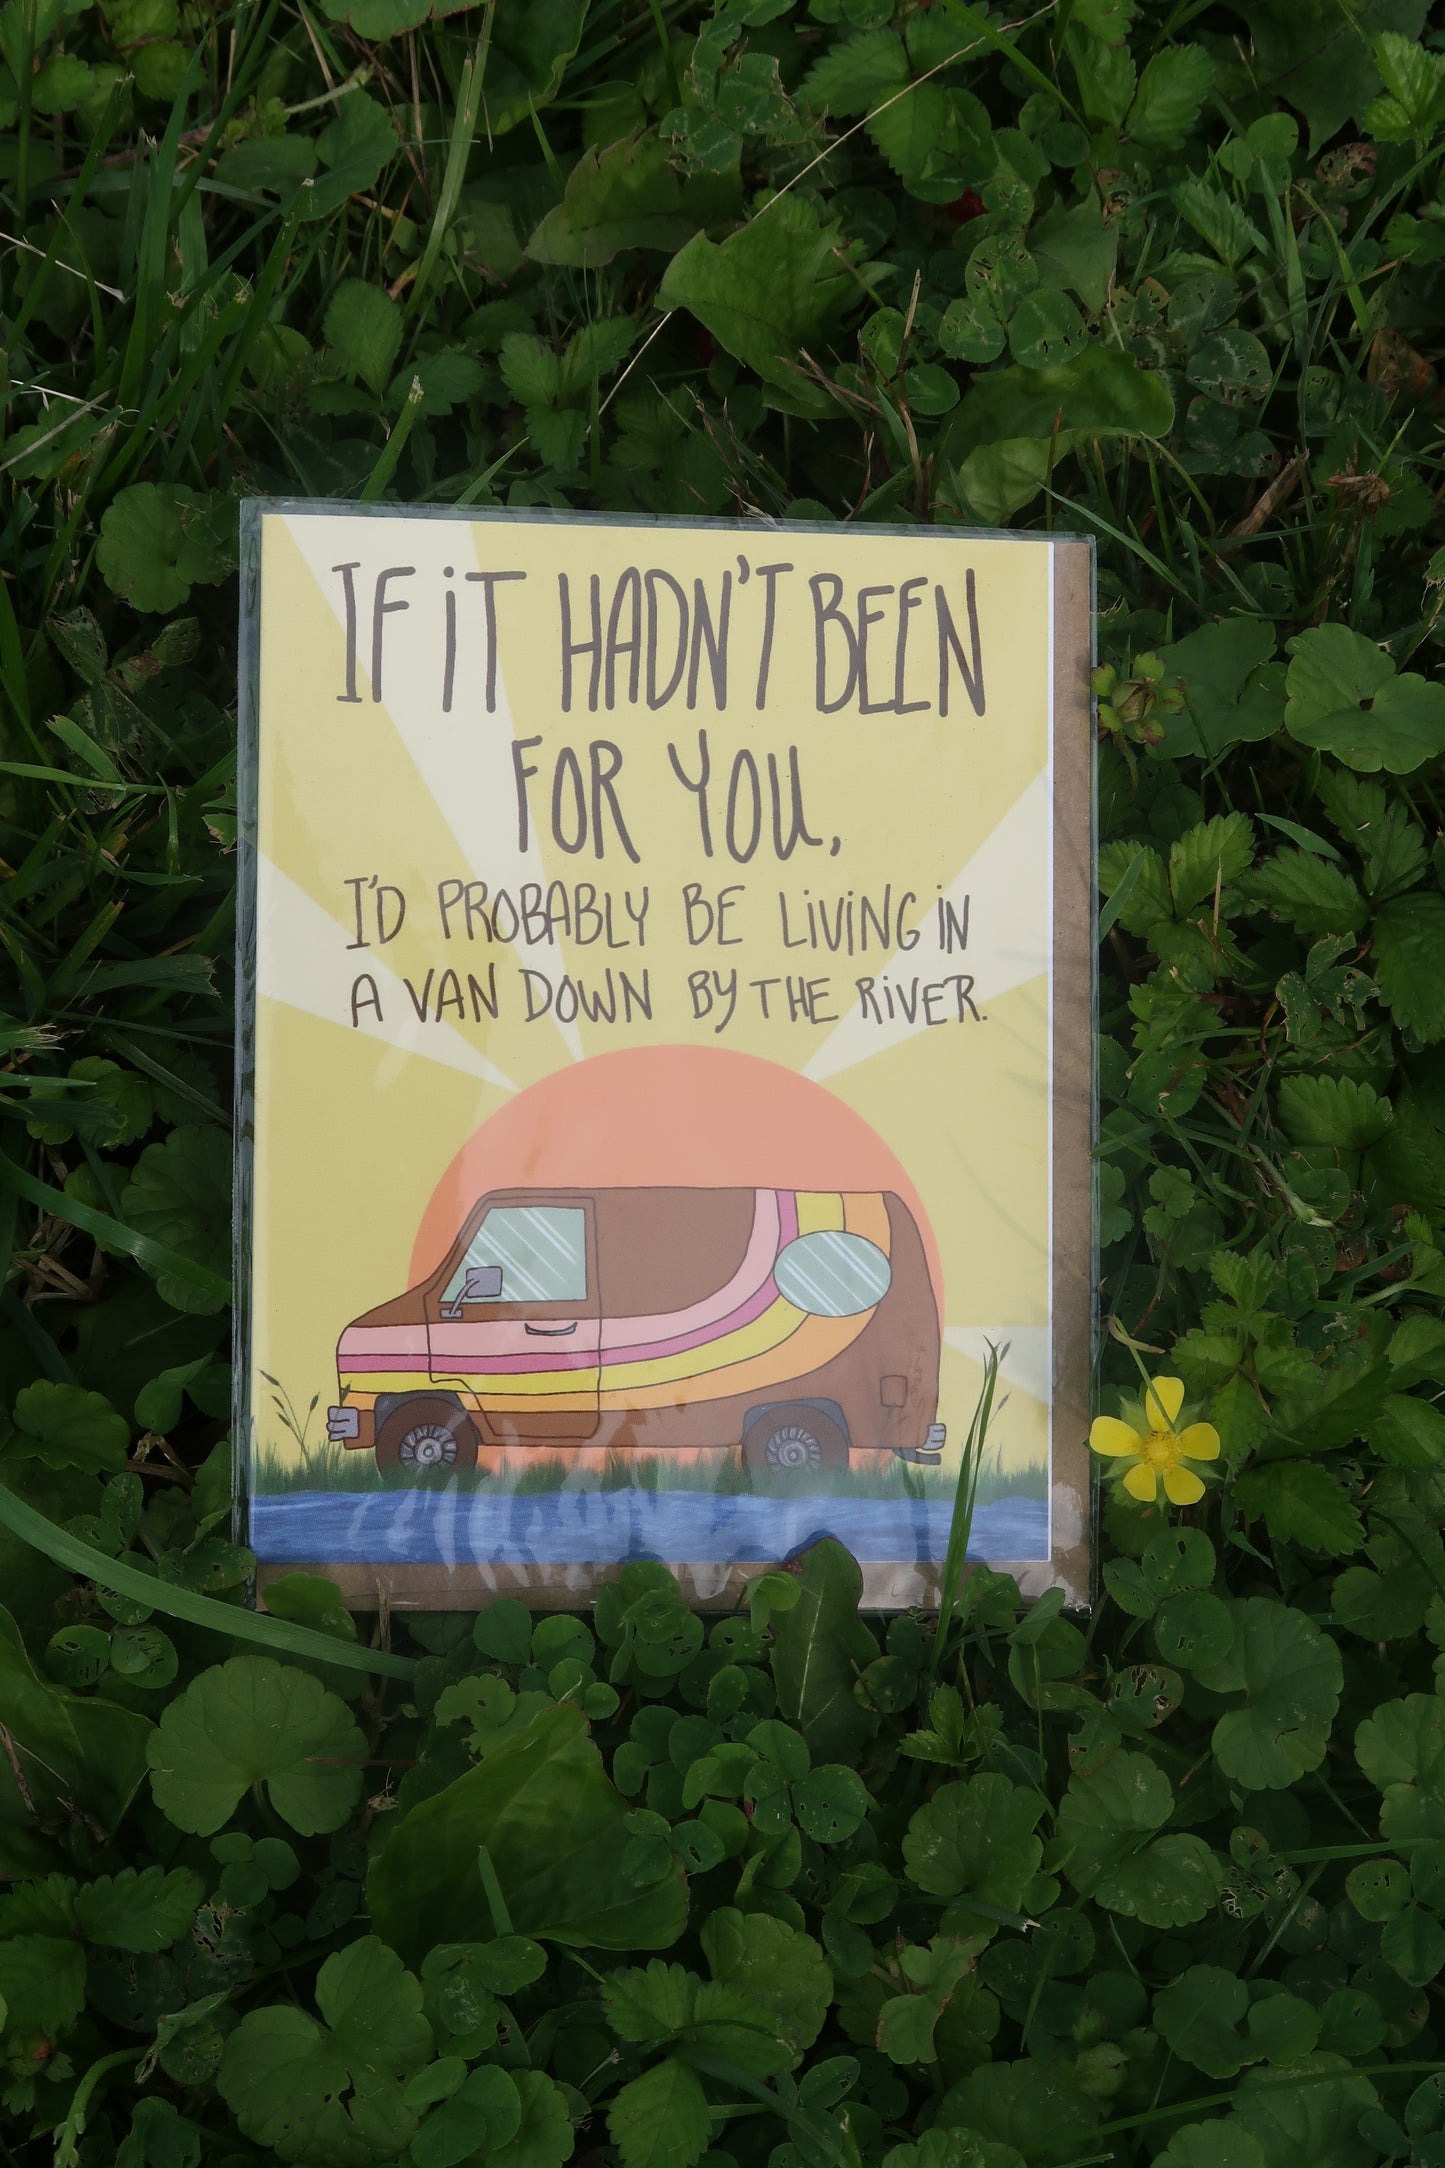 IF iT HADN'T BEEN
FOR YOU,
I'D PROBABLY BE LiViNG iN
A VAN DOWN BY THE RiVER.